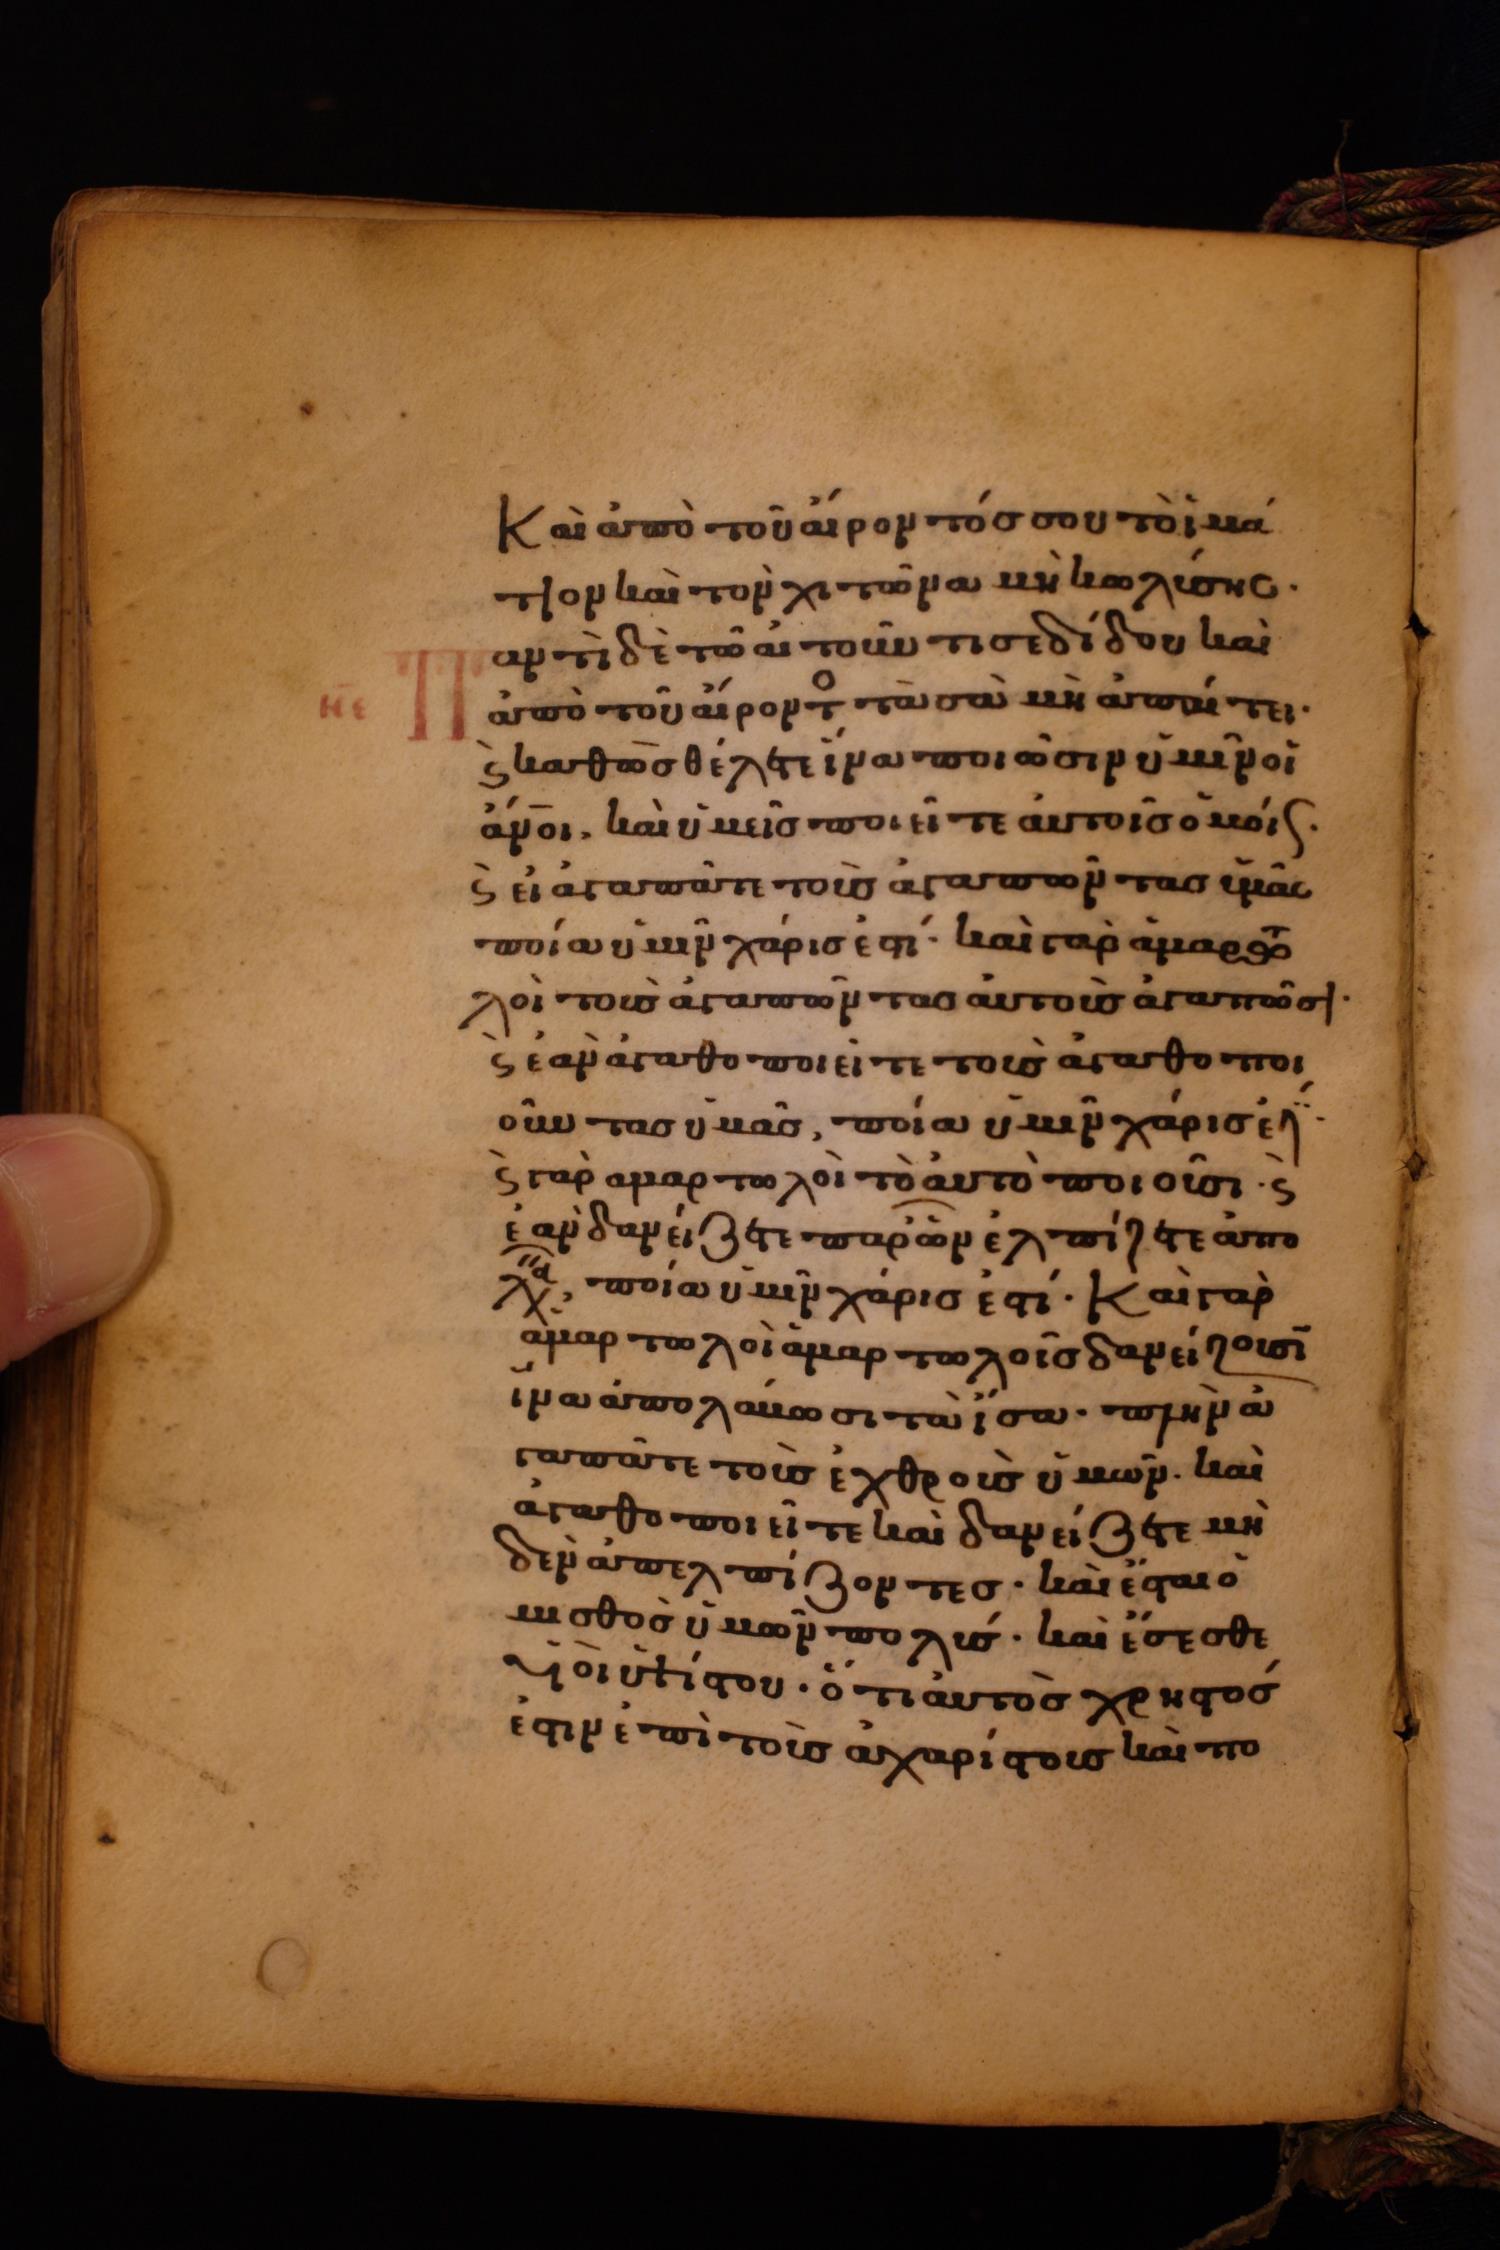 Καὶ ἀπὸ τοῦ αἴροντός σου τὸ ἱμά
τιον καὶ τὸν χιτῶνα μὴ κωλύσης·
αντὶ δὲ τῶ αἰτοῦντι σε δίδου καὶ
νε Π ἀπὸ τοῦ αἴροντο τὰ σὰ μὴ ἀπαίτει·
ϛ καθὼς θέλετε ἵνα ποιῶσιν ὑμῖν οἱ
ἄνοι, καὶ ὑμεῖς ποιεῖτε ἀυτοῖς ὁμοί·
ϛ εἰ ἀγαπᾶτε τοὺς ἀγαπῶντας ὑμᾶς
ποία ὑμῖν χάρις ἐστί· καὶ γὰρ ἁμαρτω
λοὶ τοὺς ἀγαπῶντας ἀυτοὺς ἀγαπῶσι·
ϛ ἐὰν ἀγαθοποιεῖτε τοὺς ἀγαθοποι
οῦντας ὑμᾶς, ποία ὑμῖν χάρις ἐστί·
ϛ γὰρ αμαρτωλοὶ τὸ ἀυτὸ ποιοῦσι· ϛ
ἐὰν δανείζετε παρ ὧν ἐλπίζετε ἀπο
ποία ὑμῖν χάρις ἐστί· Καὶ γὰρ
ἁμαρτωλοὶ ἁμαρτωλοῖς δανείζουσῖ
ἵνα ἀπολάβωσι τὰ ἴσα· πλὴν ἀ
γαπᾶτε τοὺς ἐχθροὺς ὑμῶν· καὶ
ἀγαθοποιεῖτε καὶ δανείζετε μη
δὲν ἀπελπίζοντες· καὶ ἔσται ὁ
μισθὸς ὑμῶν πολύς· καὶ ἔσεσθε
ὑιοὶ ὑψίστου· ὅτι ἀυτὸς χρηστός
ἐστιν ἐπὶ τοὺς ἀχαρίστους καὶ πο